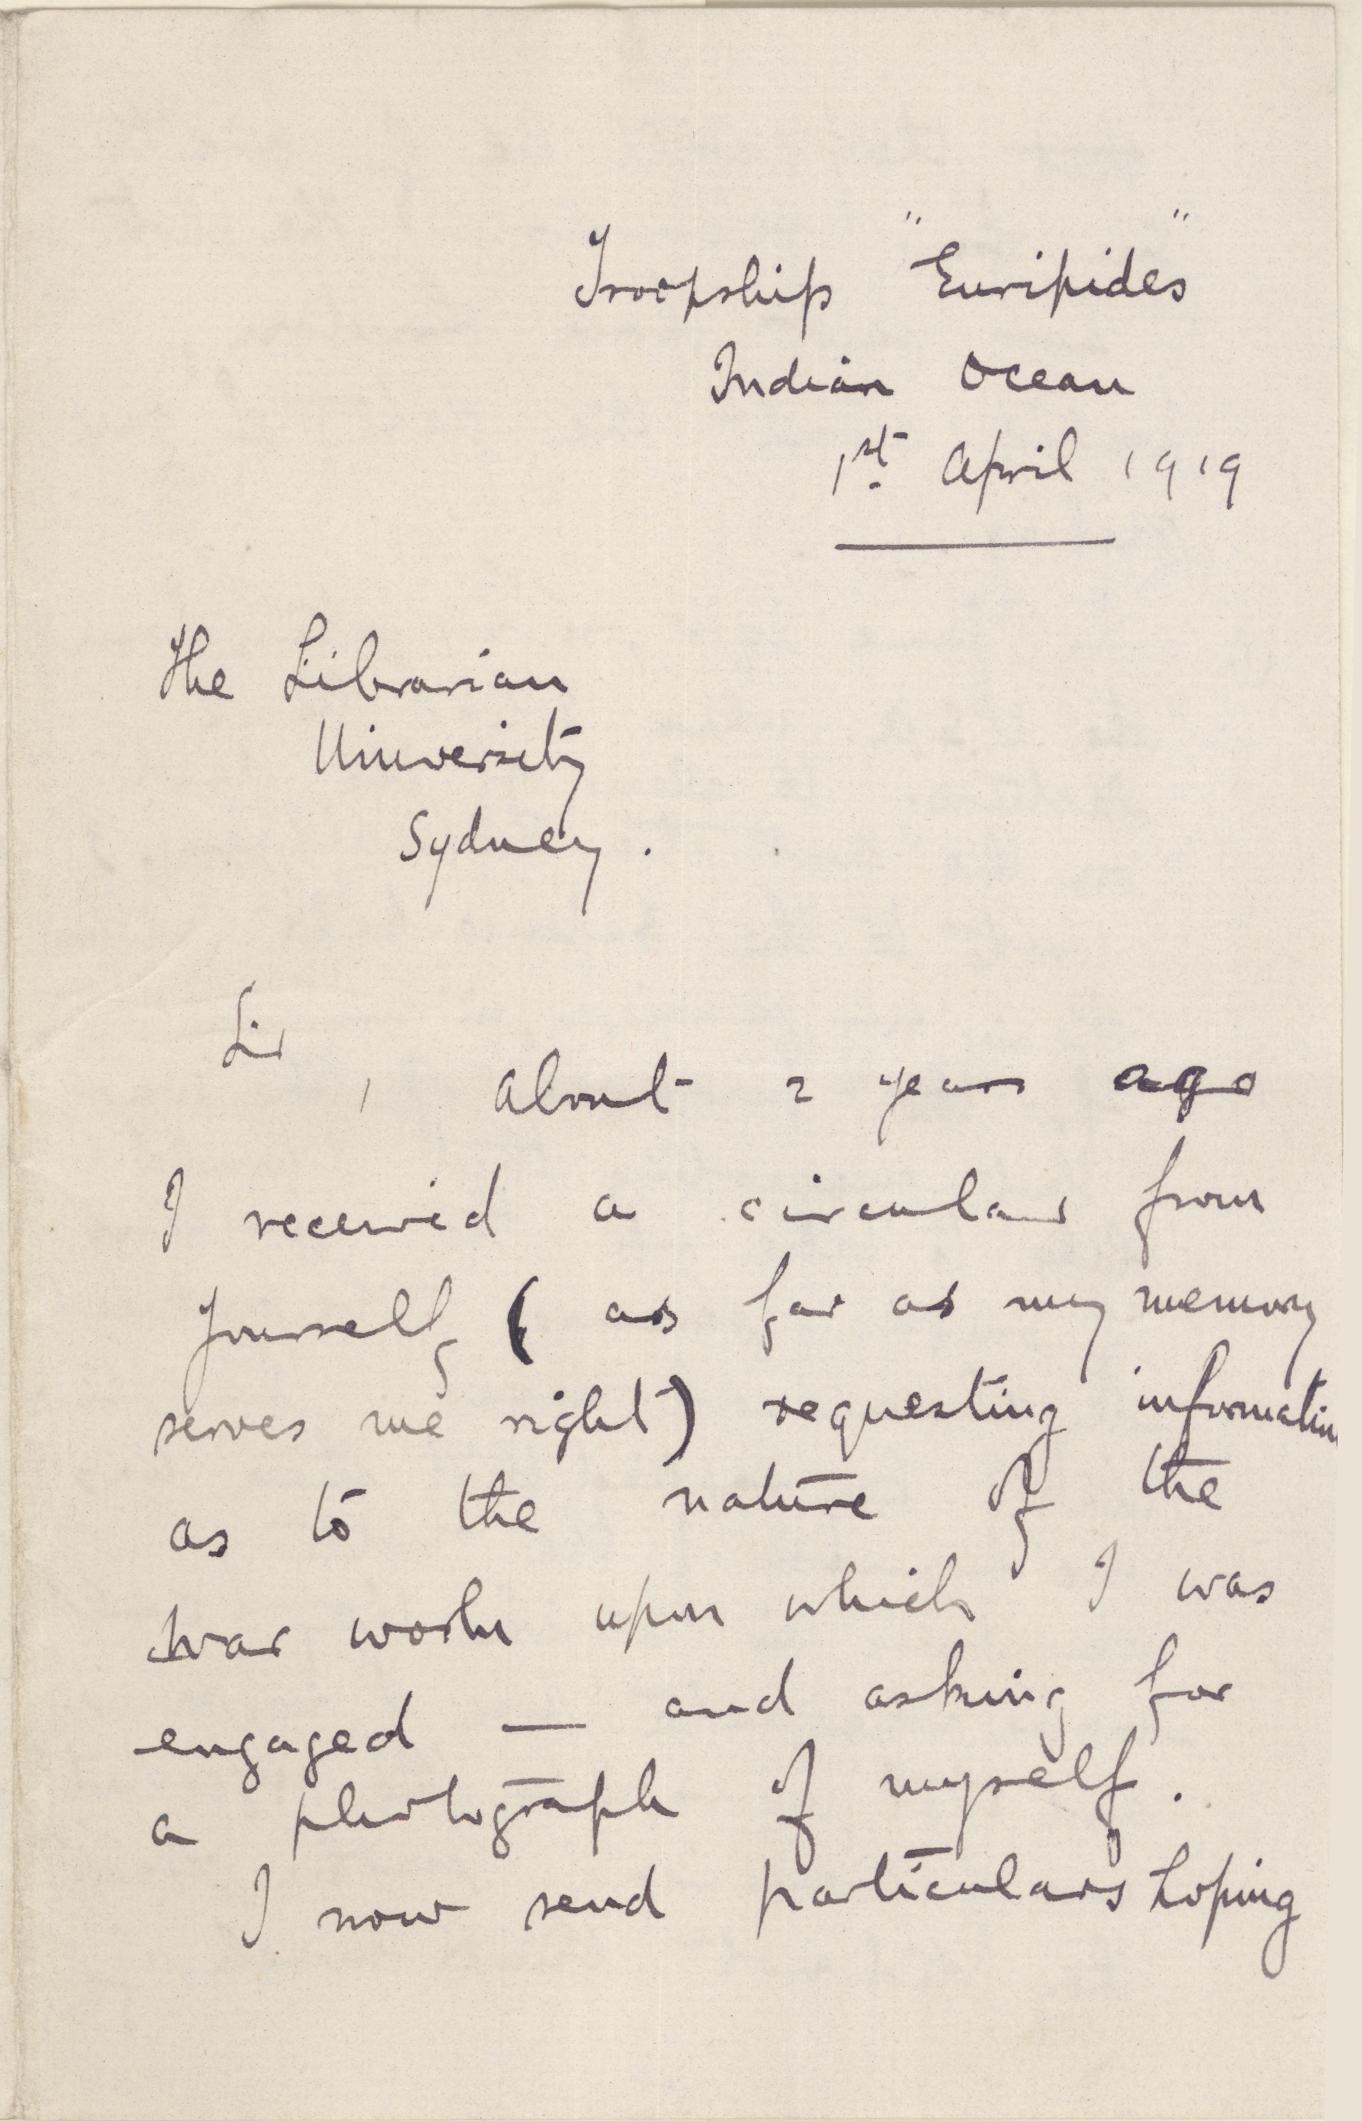 Troopship "Euripides"
Indian Ocean
1st. April 1919
The Librarian
University
Sydney.
Sir,
About 2 years ago
I received a circular from
yourself (as far as my memory
serves me right) requesting information
as to the nature of the
war work upon which I was
engaged — and asking for
a photograph of myself.
I now send particulars hoping